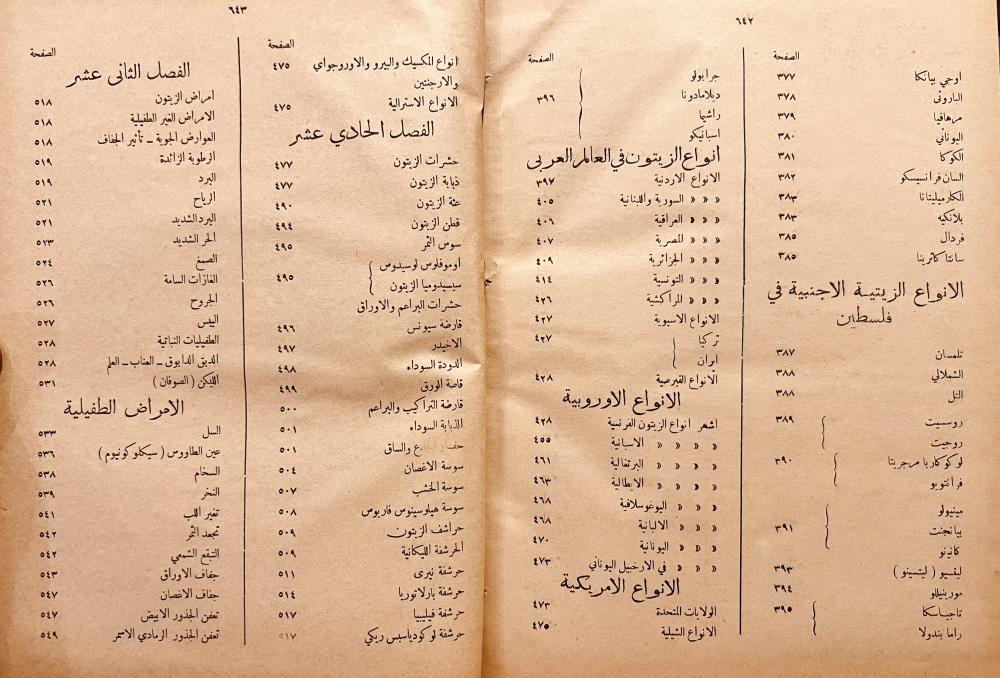 ٦٤٢
الصفحة
اوجي بيانكا ٣٧٧
الباروني ٣٧٨
مرهافيا ٣٧٩
اليوناني ٣٨٠
الكوكا ٣٨١
السان فرانسيسكو ٣٨٢
الكارميليتانا ٣٨٣
بلانكيه ٣٨٣
فردال ٣٨٥
سانتا كاترينا ٣٨٥
الانواع الزيتية الاجنبية في
فلسطين
تلمسان ٣٨٧
الشملالي ٣٨٨
التل ٣٨٨
روسسيت ٣٨٩
روجيت
لوكوكاربا مرجريتا ٣٩٠
فرانتويو
مينيولو
بيانجنت ٣٩١
كانينو
ليقسيو ( ليتسينو ) ٣٩٣
مورينيللو ٣٩٤
تاجياسكا ٣٩٥
راما بندولا
الصفحة
جرابولو
ديلامادونا ٣٩٦
راشيما
اسبانيكو
انواع الزيتون في العالم العربى
الانواع الاردنية ٣٩٧
» » » السورية واللبنانية ٤٠٥
» » » العراقية ٤٠٦
» » » المصرية ٤٠٧
» » » الجزائرية ٤٠٩
» » » التونسية ٤١٤
» » » المراكشية ٤٢٦
الانواع الاسيوية ٤٢٧
تركيا ٤٢٧
ايران
الانواع القبرصية ٤٢٨
الانواع الاوروبية
اشهر انواع الزيتون الفرنسية ٤٢٨
» » » » الاسبانية ٤٥٥
» » » » البرتغالية ٤٦١
» » » » الايطالية ٤٦٣
» » » » اليوغوسلافية ٤٦٨
» » » » الالبانية ٤٦٨
» » » » اليونانية ٤٧٠
» » » » في الارخبيل اليوناني ٤٧٣
الانواع الامريكية
الولايات المتحدة ٤٧٣
الانواع الشيلية ٤٧٥
٦٤٣
الصفحة
انواع المكسيك والبيرو والاوروجواي ٤٧٥
والارجنتين
الانواع الاسترالية ٤٧٥
الفصل الحادي عشر
حشرات الزيتون ٤٧٧
ذبابة الزيتون ٤٧٧
عثة الزيتون ٤٩٠
قطن الزيتون ٤٩٤
سوس الثمر ٤٩٥
اوموفلوس لوسيدوس
سيسيدوميا الزيتون ٤٩٥
حشرات البراعم والاوراق
قارضة سيونس ٤٩٦
الاخيدر ٤٩٧
الدودة السوداء ٤٩٨
قاصة الورق ٤٩٩
قارضة التراكيب والبراعم ٥٠٠
الذبابة السوداء ٥٠١
والساق ٥٠١
سوسة الاغصان ٥٠٤
سوسة الخشب ٥٠٧
سوسة هيلوسينوس فاربوس ٥٠٨
حراشف الزيتون ٥٠٩
الحرشفة الليكانية ٥٠٩
حرشفة نيرى ٥١١
حرشفة بارلاتوريا ٥١٤
حرشفة فيليبيا ٥١٧
حرشفة لوكودياسبس ريكي ٥١٧
الصفحة
الفصل الثانى عشر
امراض الزيتون ٥١٨
الامراض الغير الطفيلية ٥١٨
العوارض الجوية ــ تأثير الجفاف ٥١٨
الرطوبة الزائدة ٥١٩
البرد ٥١٩
الرياح ٥٢١
البرد الشديد ٥٢١
الحر الشديد ٥٢٣
الصمغ ٥٢٤
الغازات السامة ٥٢٦
الجروح ٥٢٦
اليبس ٥٢٧
الطفيليات النباتية ٥٢٨
الدبق الدابوق ــ العناب ــ العلم ٥٢٨
الليكن ( الصوفان ) ٥٣١
الامراض الطفيلية
السل ٥٣٣
عين الطاووس ( سيكلوكونيوم ) ٥٣٦
السخام ٥٣٨
النخر ٥٣٩
تغير اللب ٥٤١
تجعد الثمر ٥٤٢
التبقع الشمعي ٥٤٢
جفاف الاوراق ٥٤٣
جفاف الاغصان ٥٤٧
تعفن الجذور الابيض ٥٤٧
تعفن الجذور الرمادي الاسمر ٥٤٩